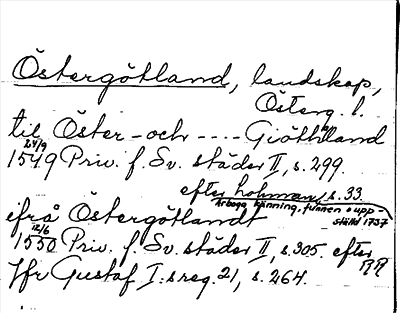 Östergötland, landskap,
Österg. l.
til Öster - och ---- Giöthland
24/9
1549 Priv. f. Sv. städer II, s. 299.
efter hohman, s. 33.
Arboga tänning, funnen o upp-
ställd 1737
ifrå Östergötlandt
12/6
1550 Priv. f. Sv. städer II, s. 305. efter
RR
Jfr Gustaf I:s reg. 21, s. 264.